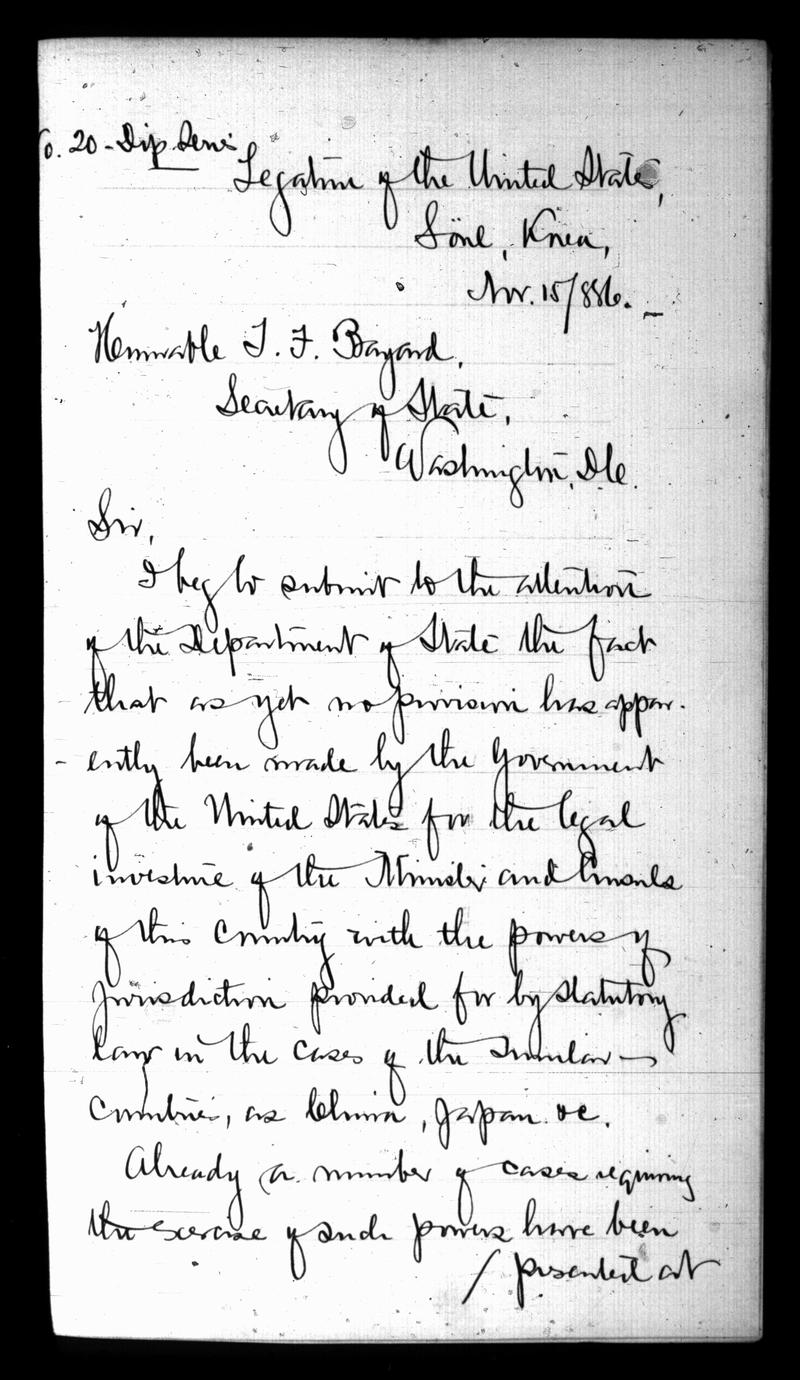 o. 20 - Dip. Series
Legation of the United States,
Söul, Korea,
Nov. 15/886.
Honorable T. F. Bayard,
Secretary of State,
Washington, D.C.
Sir,
I beg to submit to the attention
of the Department of State the fact
that as yet no provision has appar-
ently been made by the Government
of the United States for the legal
investure of the Minister and Consuls
of this Country with the powers of
jurisdiction provided for by statutory
law in the cases of the similar
Countries, as China, Japan &c.
Already a number of cases requiring
the exercise of such powers have been
/ presented at